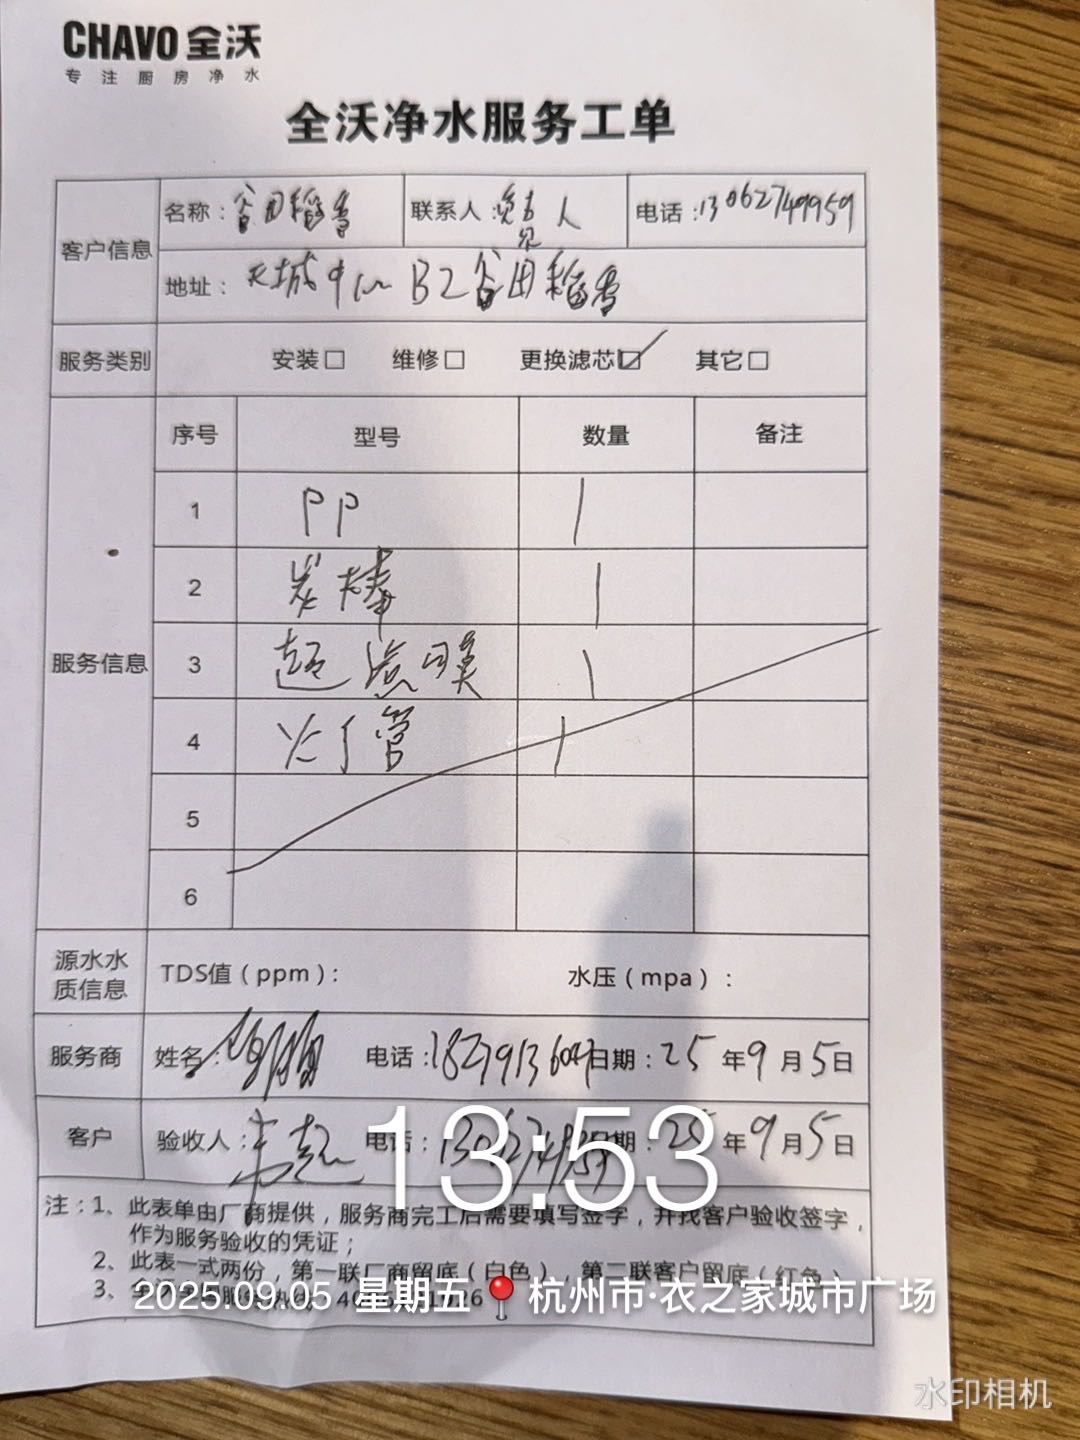 CHAVO 全沃
专注厨房净水
全沃净水服务工单
客户信息
名称：谷田稻香 联系人： 人 电话：13062749959
地址：天城中心 B2谷田稻香
服务类别 安装□ 维修□ 更换滤芯☑ 其它□
服务信息
序号 型号 数量 备注
1 PP 1
2 炭棒 1
3 超滤膜 1
4 灯管 1
5
6
源水水质信息 TDS值（ppm）： 水压（mpa）：
服务商 姓名： 电话： 日期：25年9月5日
客户 验收人： 电话： 日期：25年9月5日
13:53
注：1、此表单由厂商提供，服务商完工后需要填写签字，并找客户验收签字，
作为服务验收的凭证；
2、此表一式两份，第一联厂商留底（白色），第二联客户留底（红色）
3、
2025.09.05 星期五 📍杭州市·衣之家城市广场
水印相机